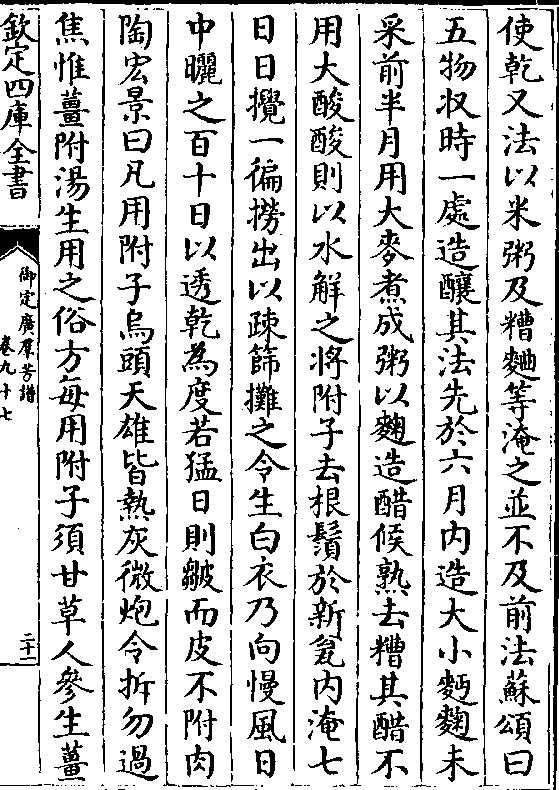 使乾又法以米粥及糟麯等淹之並不及前法蘇頌曰
五物收時一處造釀其法先於六月内造大小麪麴未
采前半月用大麥煮成粥以麴造醋候熟去糟其醋不
用大酸酸則以水解之將附子去根鬚於新瓮内淹七
日日攪一徧撈出以疎篩攤之令生白衣乃向慢風日
中曬之百十日以透乾為度若猛日則皺而皮不附肉
陶宏景曰凡用附子烏頭天雄皆熱灰微炮令拆勿過
焦惟薑附湯生用之俗方每用附子須甘草人參生薑
欽定四庫全書
御定廣羣芳譜
卷九十七
二十一